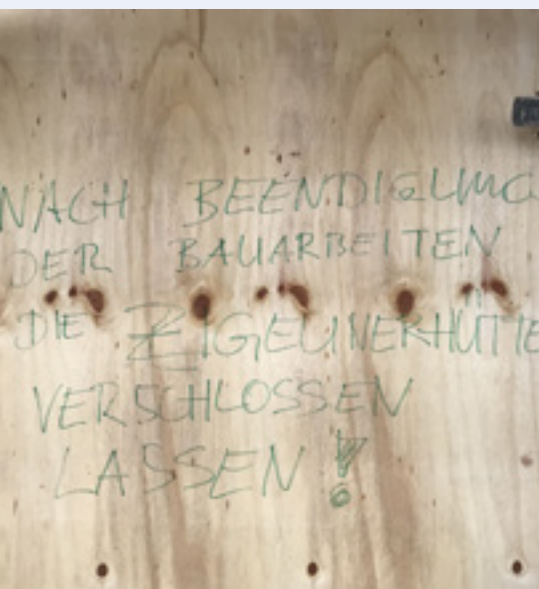 NACH BEENDIGUNG
DER BAUARBEITEN
DIE ZIGEUNERHÜTTE
VERSCHLOSSEN
LASSEN!